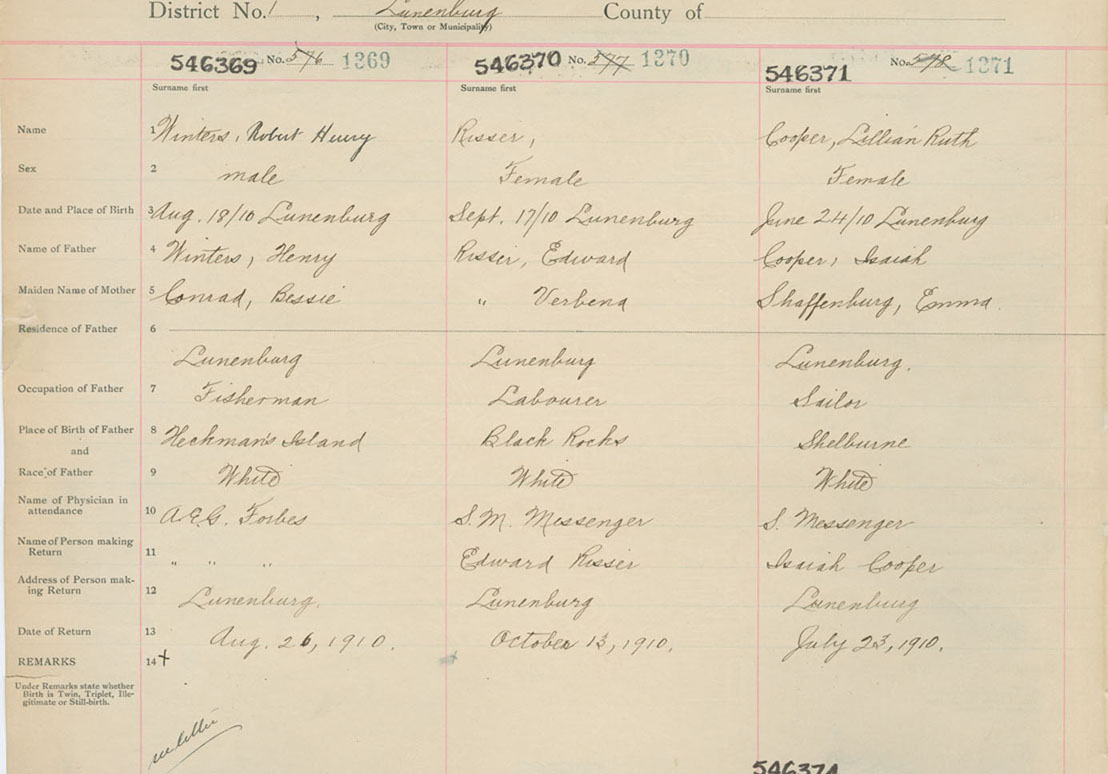 District No. 1, Lunenburg County of
(City, Town or Municipality)
546369 No. 576 1369 546370 No. 577 1370 546371 No. 578 1371
Surname first Surname first Surname first
Name 1 Winters, Robert Henry Risser, Cooper, Lillian Ruth
Sex 2 male Female Female
Date and Place of Birth 3 Aug. 18/10 Lunenburg Sept. 17/10 Lunenburg June 24/10 Lunenburg
Name of Father 4 Winters, Henry Risser, Edward Cooper, Isaiah
Maiden Name of Mother 5 Conrad, Bessie " Verbena Shaffenburg, Emma.
Residence of Father 6
Lunenburg Lunenburg Lunenburg.
Occupation of Father 7 Fisherman Labourer Sailor
Place of Birth of Father 8 Heckman's Island Black Rocks Shelburne
and
Race of Father 9 White White White
Name of Physician in
attendance 10 A.E.G. Forbes S.M. Messenger S. Messenger
Name of Person making
Return 11 " " " Edward Risser Isaiah Cooper
Address of Person mak-
ing Return 12 Lunenburg. Lunenburg Lunenburg
Date of Return 13 Aug. 26, 1910. October 13, 1910. July 23, 1910.
REMARKS 14 +
Under Remarks state whether
Birth is Twin, Triplet, Ille-
gitimate or Still-birth.
546374